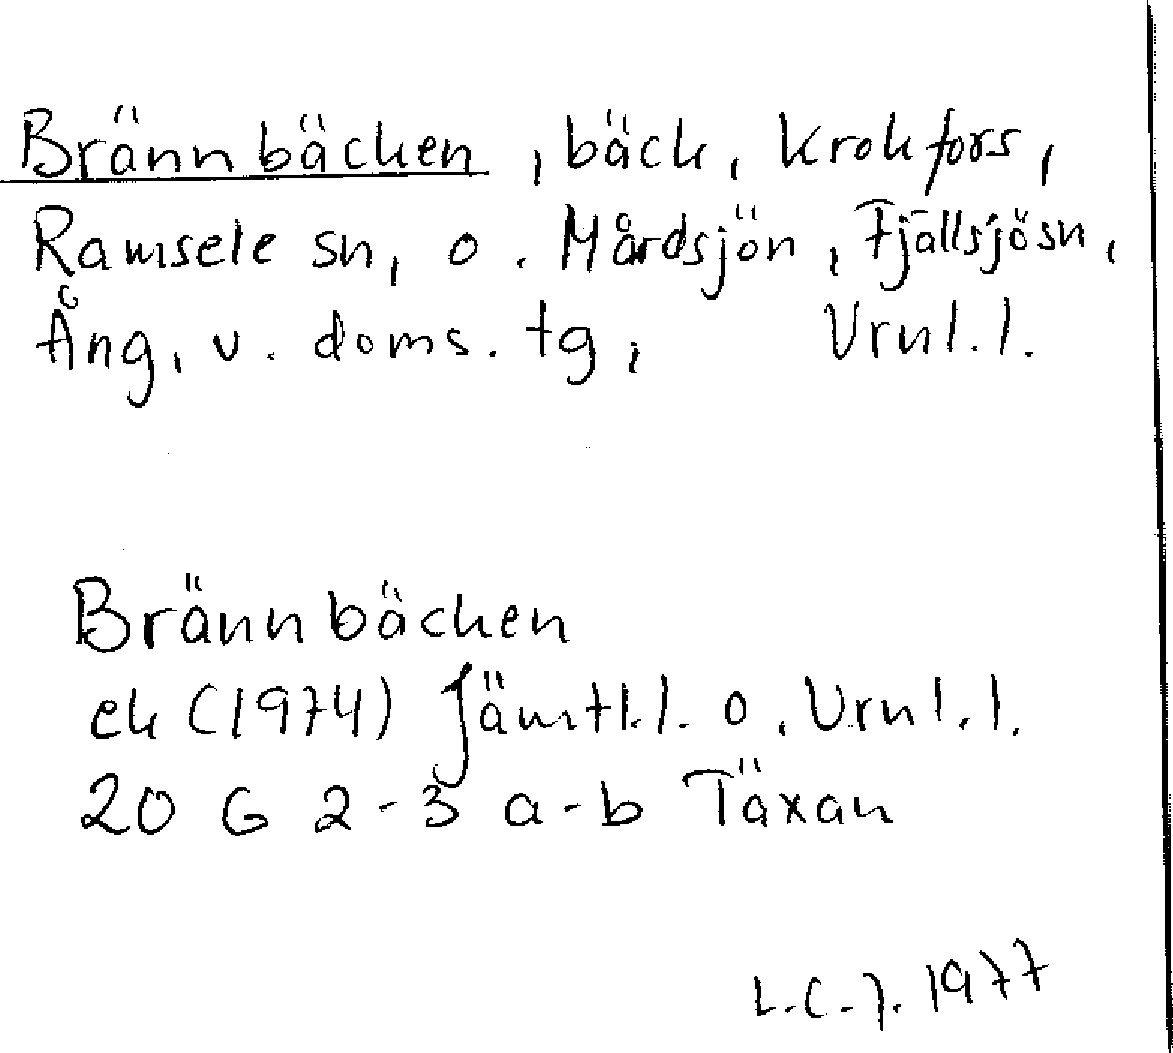 Brännbäcken, bäck, Krokfors,
Ramsele sn, o. Mårdsjön, Fjällsjö sn,
Ång, v. doms. tg, Vrnl. l.
Brännbäcken
ek (1974) Jämtl. l. o. Vrnl. l.
20 G 2-3 a-b Täxan
L.C.J. 1977